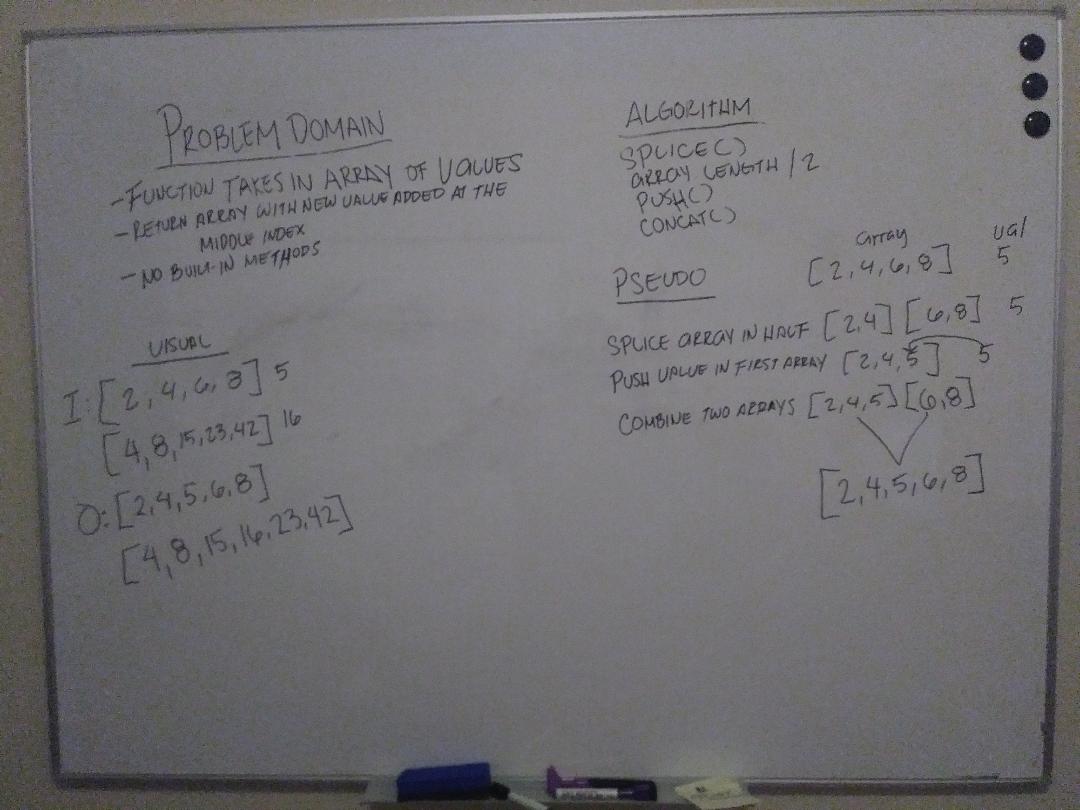 PROBLEM DOMAIN
- FUNCTION TAKES IN ARRAY OF VALUES
- RETURN ARRAY WITH NEW VALUE ADDED AT THE
MIDDLE INDEX
- NO BUILT-IN METHODS
VISUAL
I: [2, 4, 6, 8] 5
[4, 8, 15, 23, 42] 16
O: [2, 4, 5, 6, 8]
[4, 8, 15, 16, 23, 42]
ALGORITHM
SPLICE()
ARRAY LENGTH / 2
PUSH()
CONCAT()
array val
PSEUDO [2, 4, 6, 8] 5
SPLICE ARRAY IN HALF [2,4] [6,8] 5
PUSH VALUE IN FIRST ARRAY [2,4,5] 5
COMBINE TWO ARRAYS [2,4,5] [6,8]
[2,4,5,6,8]